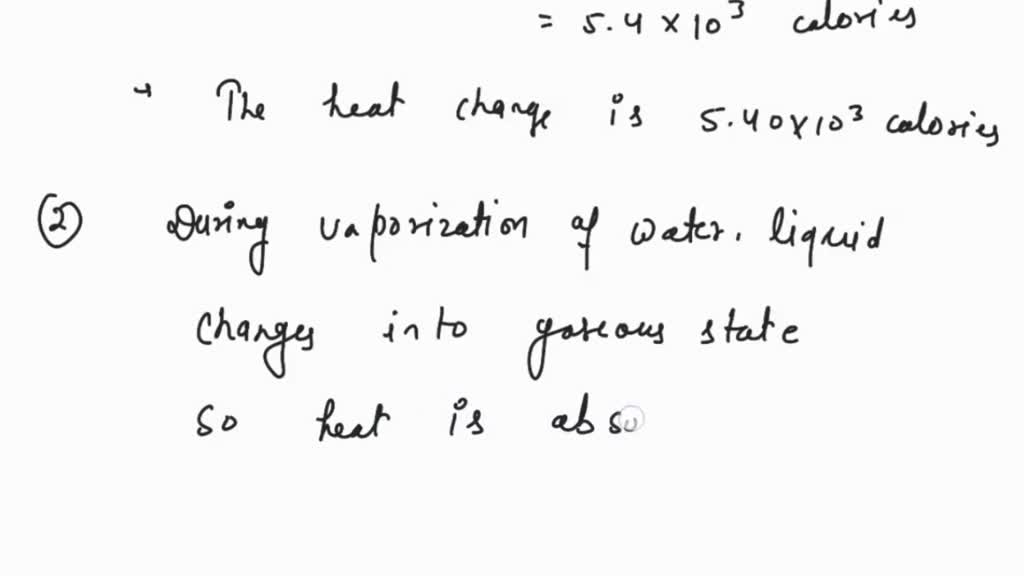 = 5.4 × 10³ calories
→ The heat change is 5.40×10³ calories
② During vaporization of water. liquid
changes into gaseous state
so heat is abso